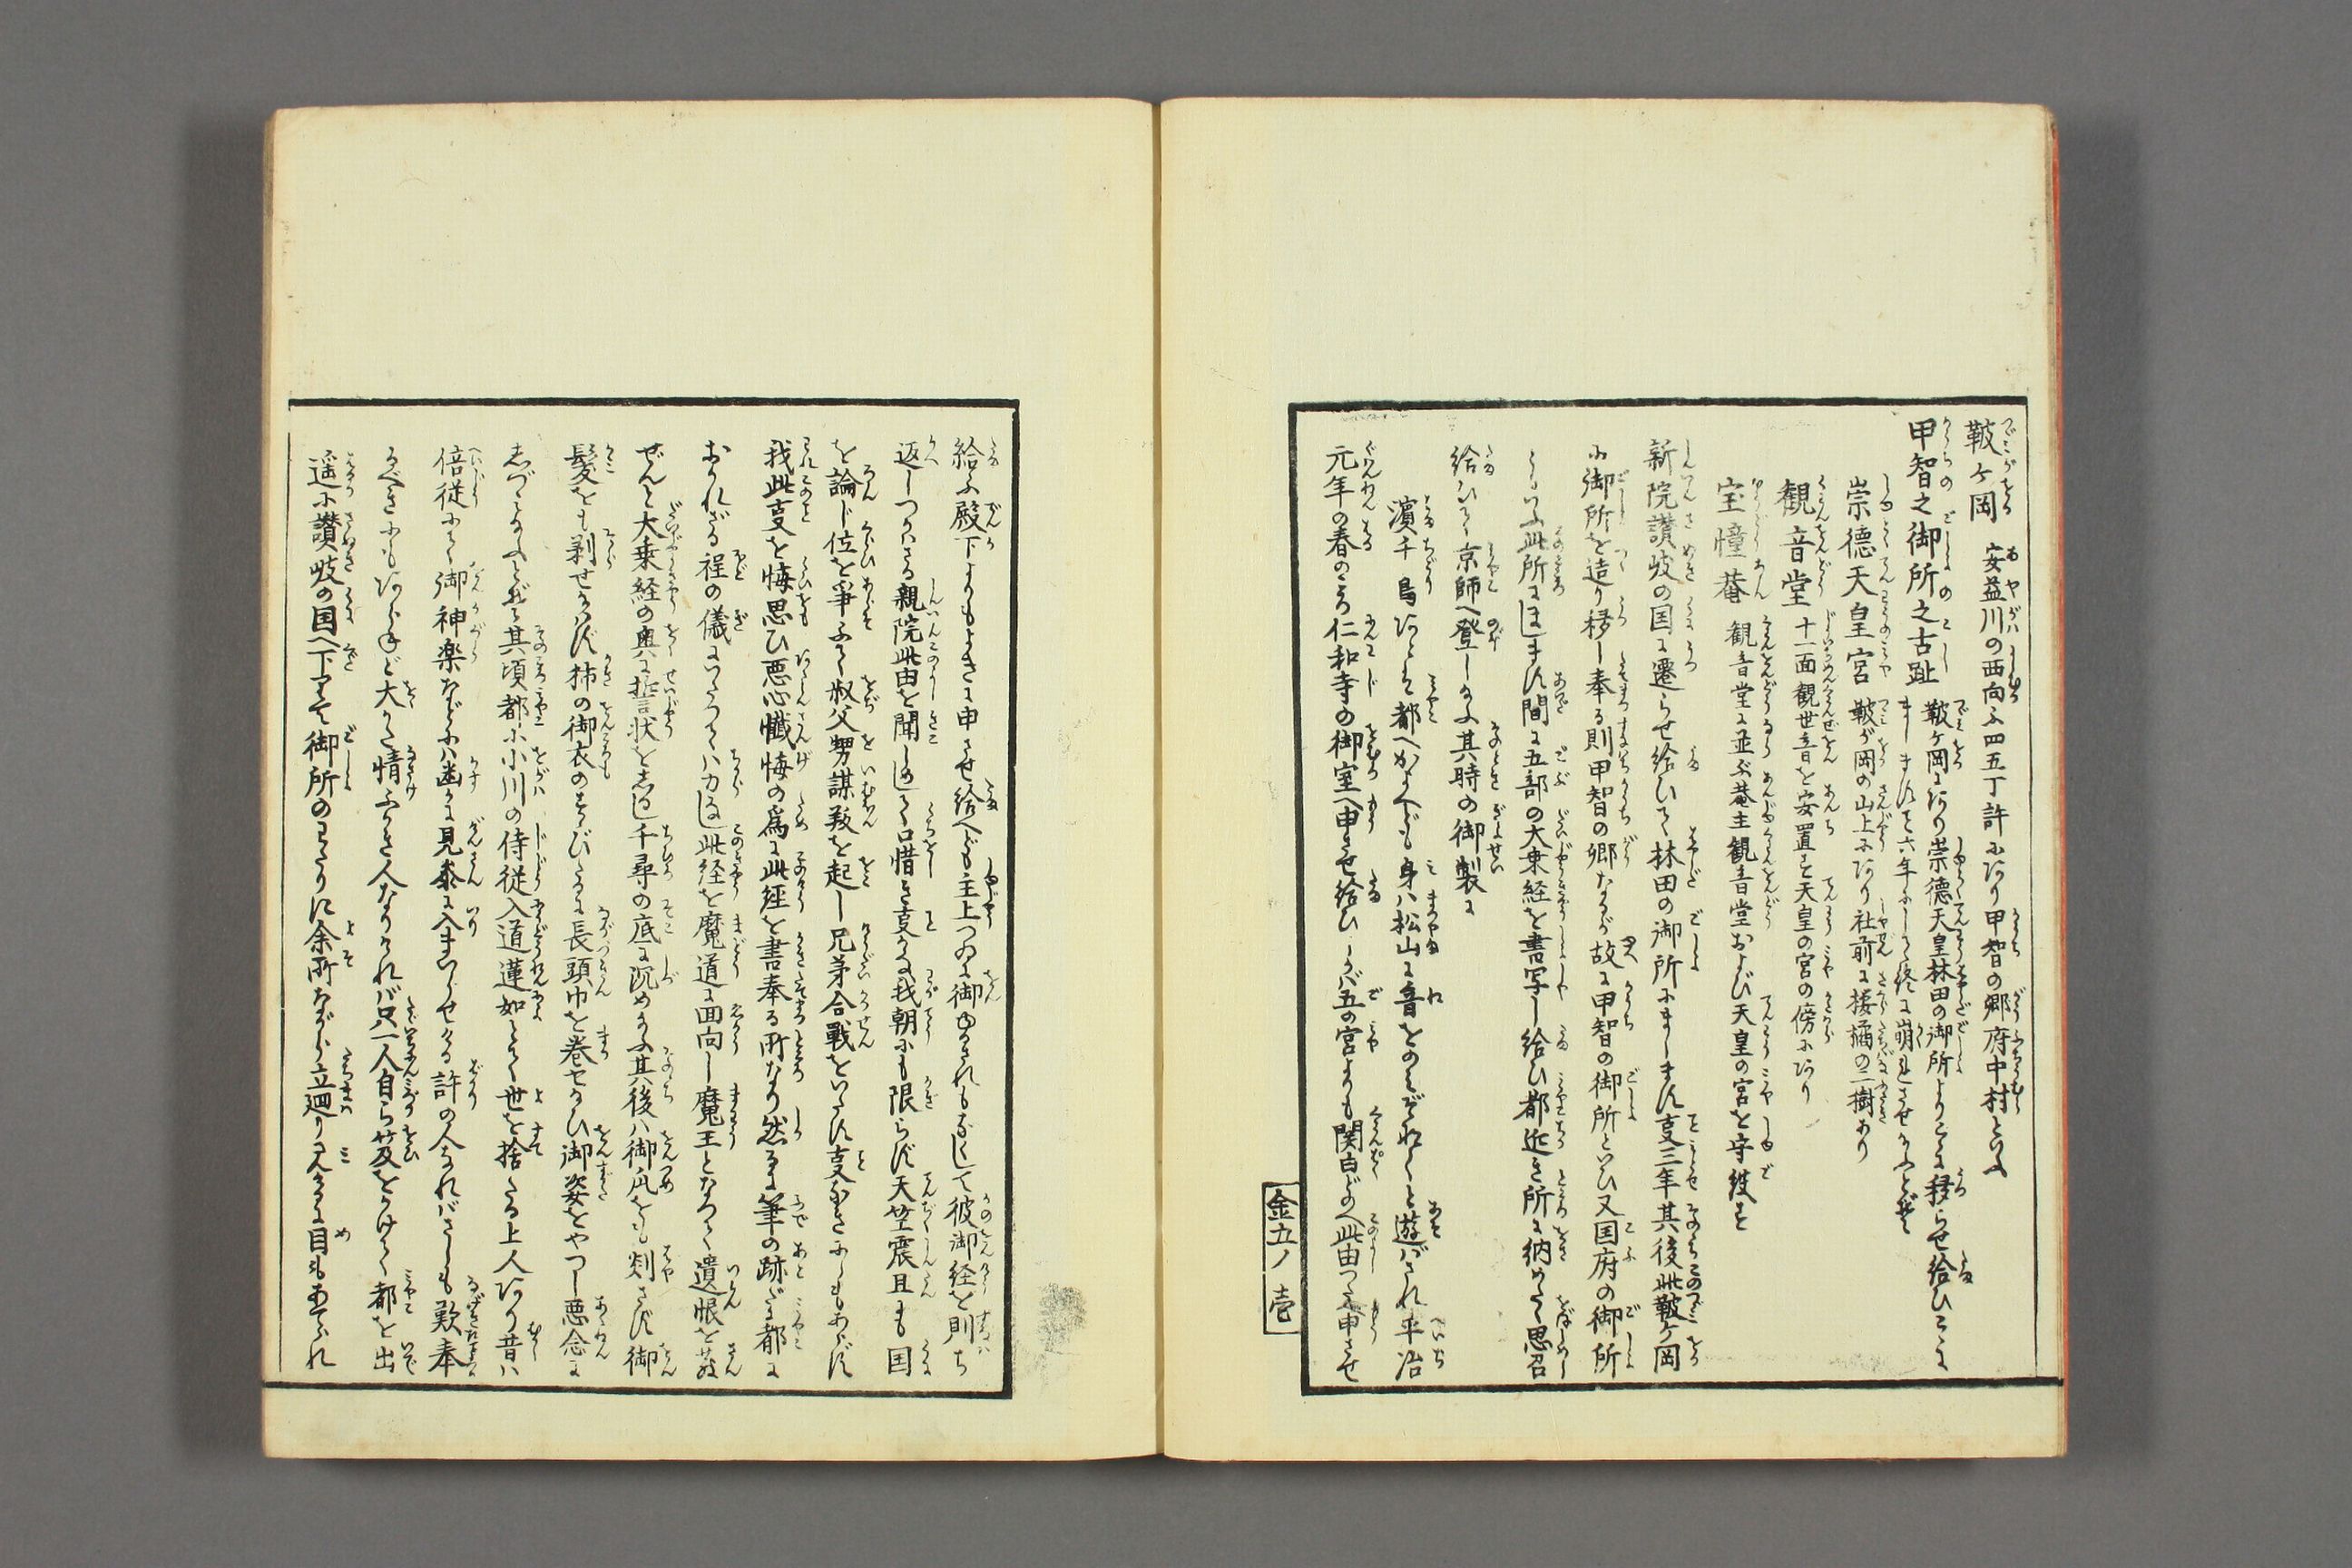 鞁ヶ岡 安益川の西向ふ四五丁許にあり甲智の郷府中村といふ
甲智之御所之古趾 鞁ヶ岡にあり崇徳天皇林田の御所よりこゝに移らせ給ひこゝに
ましますこと六年にして終に崩御させ給ふとぞ
崇徳天皇宮 鞁が岡の山上にあり社前に接橘の二樹あり
観音堂 十一面観世音を安置す天皇の宮の傍にあり
宝幢菴 観音堂に並ぶ菴主観音堂および天皇の宮を守護す
新院讃岐の国に遷らせ給ひて林田の御所にまします事三年其後此鞁ヶ岡
に御所を造り移し奉る則甲智の郷なるが故に甲智の御所といひ又国府の御所
ともいふ此所にまします間に五部の大乗経を書写し給ひ都近き所に納めたく思召
給ひて京師へ登しける其時の御製に
濱千鳥あとは都へかよへども身は松山に音をのみぞなくと遊ばされ平治
元年の春のころ仁和寺の御室へ申させ給ひしかば五の宮よりも関白どのへ此由つたへ申させ
金五ノ 壱
給ふ殿下よりもよきに申させ給へども主上つゐに御ゆるされもなくして彼御経を則ち
返しつかはさる新院此由を聞しめして口惜き事かな我朝にも限らず天竺震旦にも国
を論じ位を争ふて叔父甥謀叛を起し兄弟合戦をいたす事なきにしもあらず
我此事を悔思ひ悪心懺悔の為に此経を書奉る所なり然るに筆の跡だに都に
おかれざる程の儀にいたつては力なし此経を魔道に回向し魔王となつて遺恨を散
ぜんと大乗経の奥に誓状をあそばし千尋の底に沈め給ふ其後は御爪をも剪さず御
髪をも剃せ給はず柿の御衣のすゝびたるに長頭巾を巻せ給ひ御姿をやつし悪念に
しづみ給ふとぞ其頃都に小川の侍従入道蓮如とて世を捨たる上人あり昔は
倍従にて御神楽などには幽に見参に入まいらせける許の人なればさしも歎奉
るべきにもあらねど大かた情ふかき人なりければ只一人自ら笈をかけて都を出
遥に讃岐の国へ下りて御所のわたりに余所ながら立廻り見るに目もあてられ